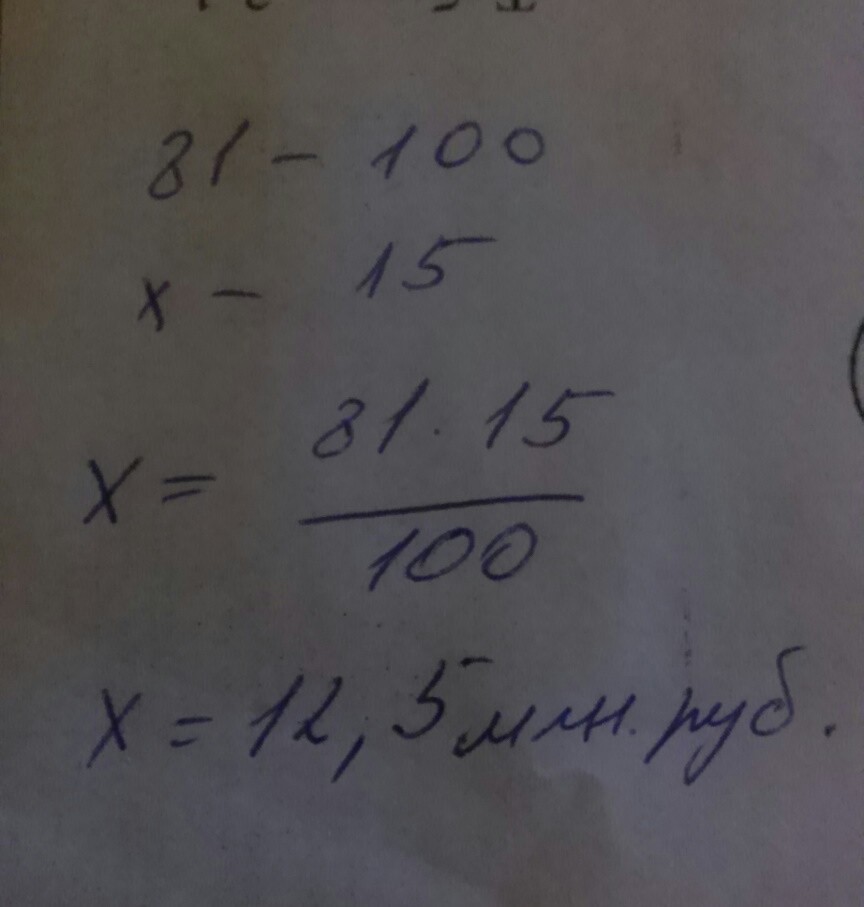 81 - 100
x - 15
x = 81 · 15
100
x = 12,5 млн. руб.